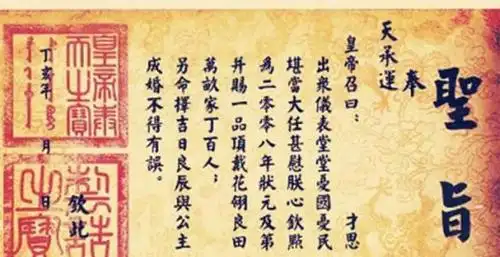 聖旨
奉
天承運
皇帝召曰: 才思
出衆儀表堂堂憂國憂民
堪當大任甚慰朕心欽點
為二零零八年狀元及第
并賜一品頂戴花翎良田
萬畝家丁百人;
另命擇吉日良辰與公主
成婚不得有誤。
欽此
丁亥年 月 日
皇帝奉
天之寶
之寶